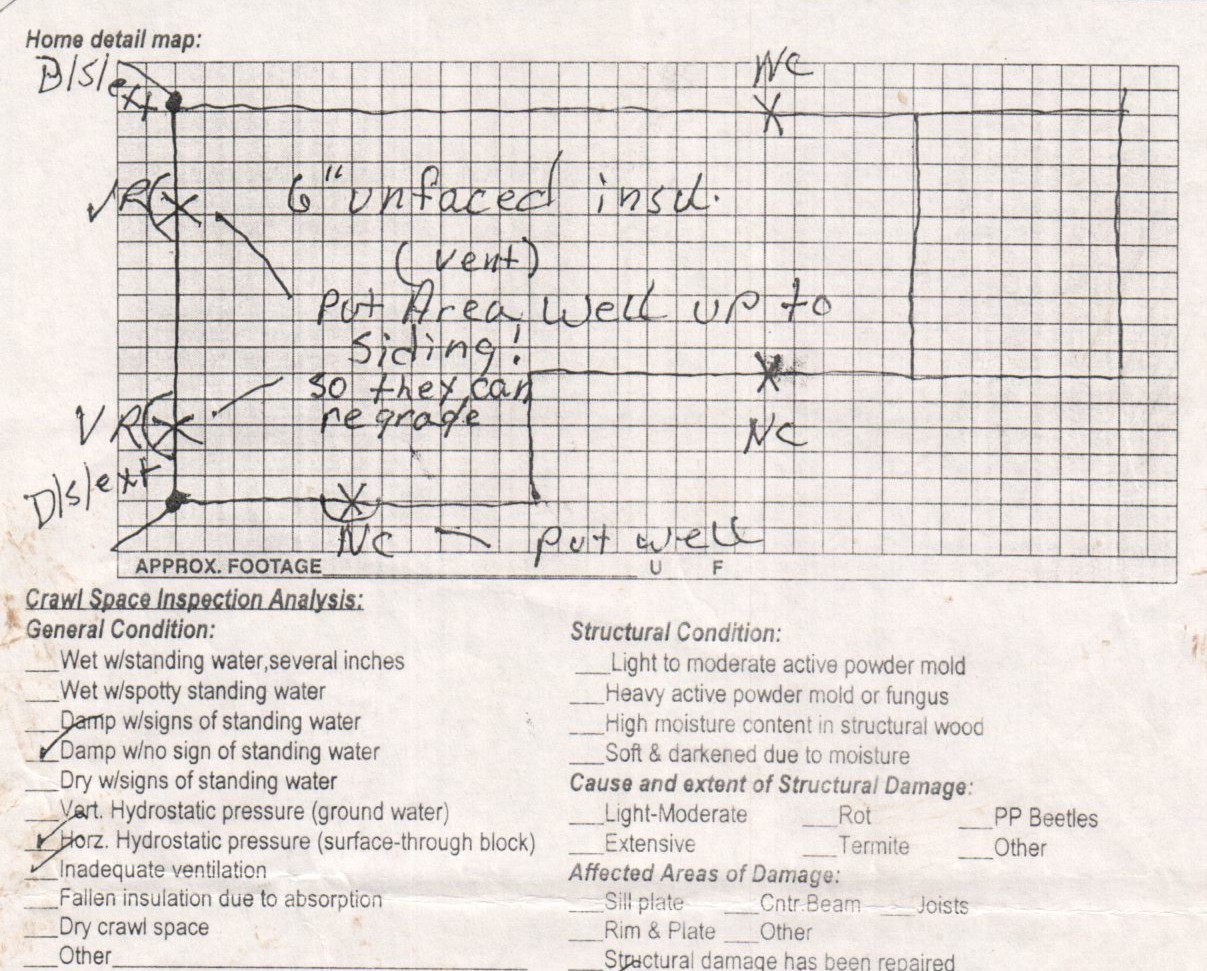 Home detail map:
D/S/ext
NC
VR
6" unfaced insul.
(vent)
Put Area Well up to
Siding!
so they can
regrade
VR
NC
D/S/ext
NC — put well
APPROX. FOOTAGE____ U F
Crawl Space Inspection Analysis:
General Condition:
___Wet w/standing water,several inches
___Wet w/spotty standing water
___Damp w/signs of standing water
✓Damp w/no sign of standing water
___Dry w/signs of standing water
___Vert. Hydrostatic pressure (ground water)
✓Horz. Hydrostatic pressure (surface-through block)
✓Inadequate ventilation
___Fallen insulation due to absorption
___Dry crawl space
___Other____
Structural Condition:
___Light to moderate active powder mold
___Heavy active powder mold or fungus
___High moisture content in structural wood
___Soft & darkened due to moisture
Cause and extent of Structural Damage:
___Light-Moderate ___Rot ___PP Beetles
___Extensive ___Termite ___Other
Affected Areas of Damage:
___Sill plate ___Cntr.Beam ___Joists
___Rim & Plate ___Other
___Structural damage has been repaired